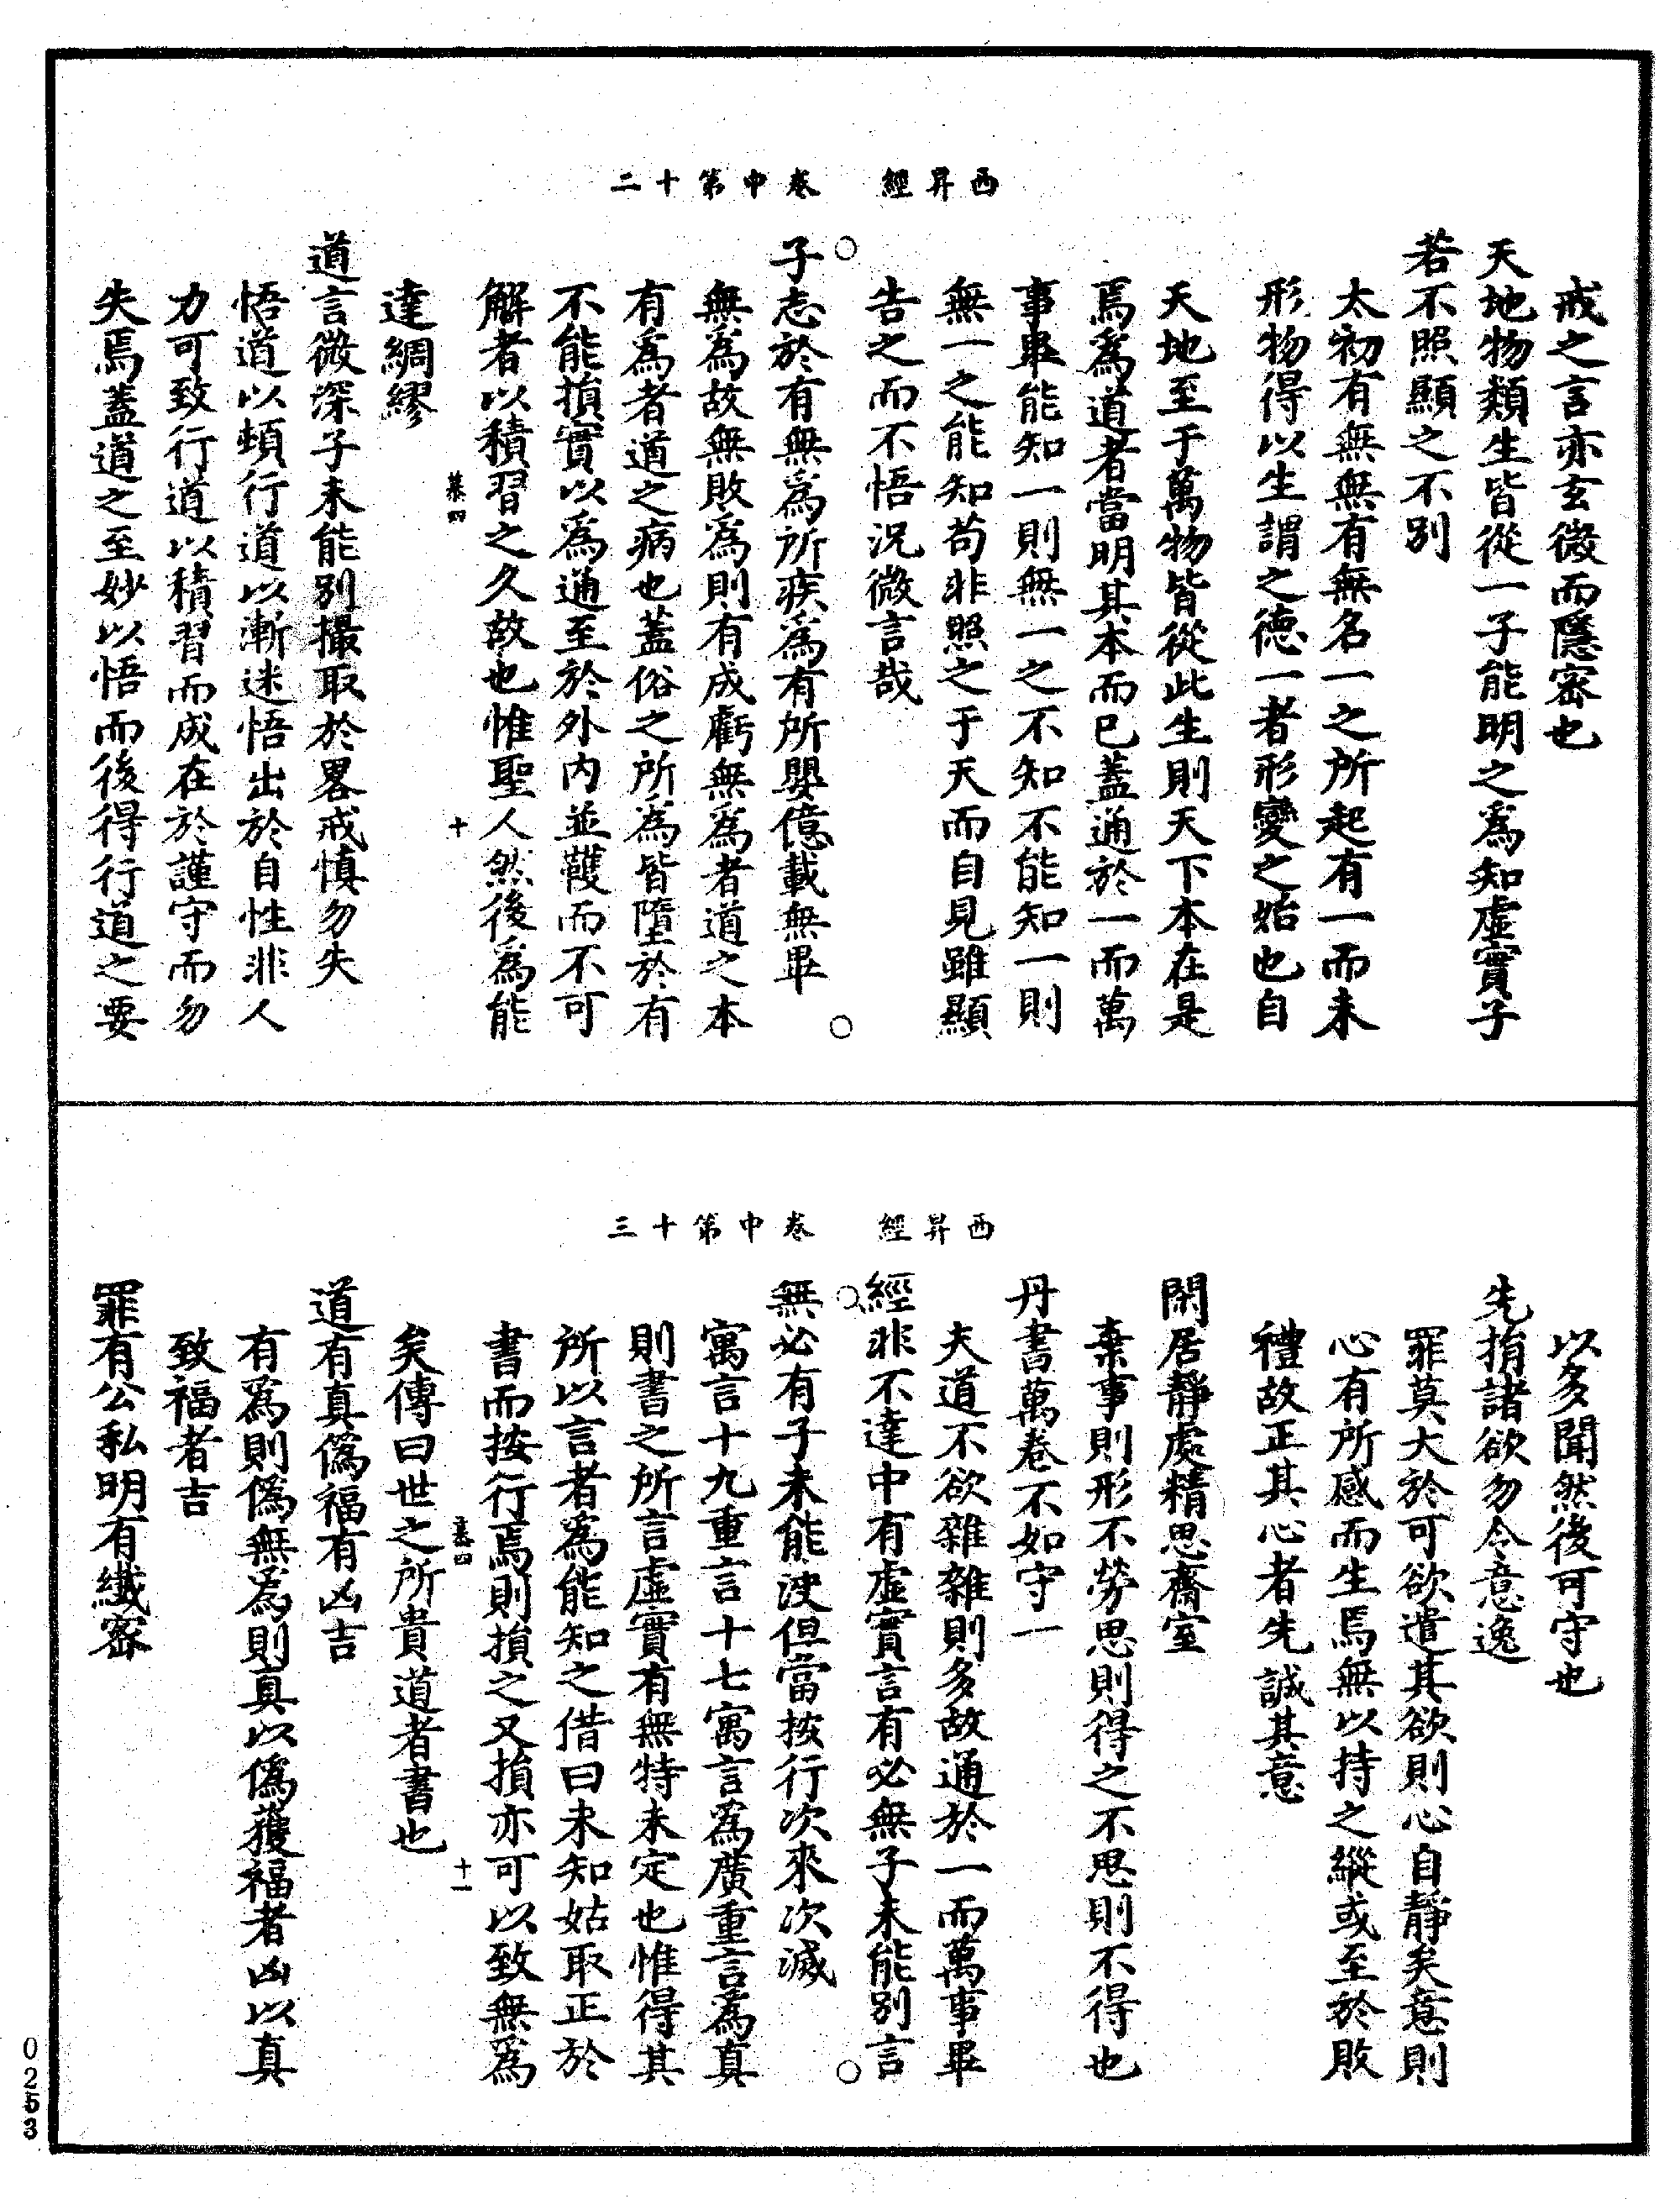 西昇經　卷中第十二
戒之言亦玄微而隱密也
天地物類生皆從一子能明之爲知虛實子
若不照顯之不別
太初有無無有無名一之所起有一而未
形物得以生謂之德一者形變之始也自
天地至于萬物皆從此生則天下本在是
焉爲道者當明其本而已蓋通於一而萬
事畢能知一則無一之不知不能知一則
無一之能知苟非照之于天而自見雖顯
告之而不悟況微言哉
子志於有無爲所疾爲有所嬰億載無畢
無爲故無敗爲則有成虧無爲者道之本
有爲者道之病也蓋俗之所爲皆墮於有
不能損實以爲通至於外內並韄而不可
解者以積習之久故也惟聖人然後爲能
達綢繆
慕四　十
道言微深子未能別撮取於畧戒慎勿失
悟道以頓行道以漸迷悟出於自性非人
力可致行道以積習而成在於謹守而勿
失焉蓋道之至妙以悟而後得行道之要
西昇經　卷中第十三
以多聞然後可守也
先捐諸欲勿令意逸
罪莫大於可欲遣其欲則心自靜矣意則
心有所感而生焉無以持之縱或至於敗
禮故正其心者先誠其意
閑居靜處精思齋室
棄事則形不勞思則得之不思則不得也
丹書萬卷不如守一
夫道不欲雜雜則多故通於一而萬事畢
經非不達中有虛實言有必無子未能別言
無必有子未能決但當按行次來次滅
寓言十九重言十七寓言爲廣重言爲真
則書之所言虛實有無特未定也惟得其
所以言者爲能知之借曰未知姑取正於
書而按行焉則損之又損亦可以致無爲
慕四　十一
矣傳曰世之所貴道者書也
道有真僞福有凶吉
有爲則僞無爲則真以僞獲福者凶以真
致福者吉
罪有公私明有纖密
0253